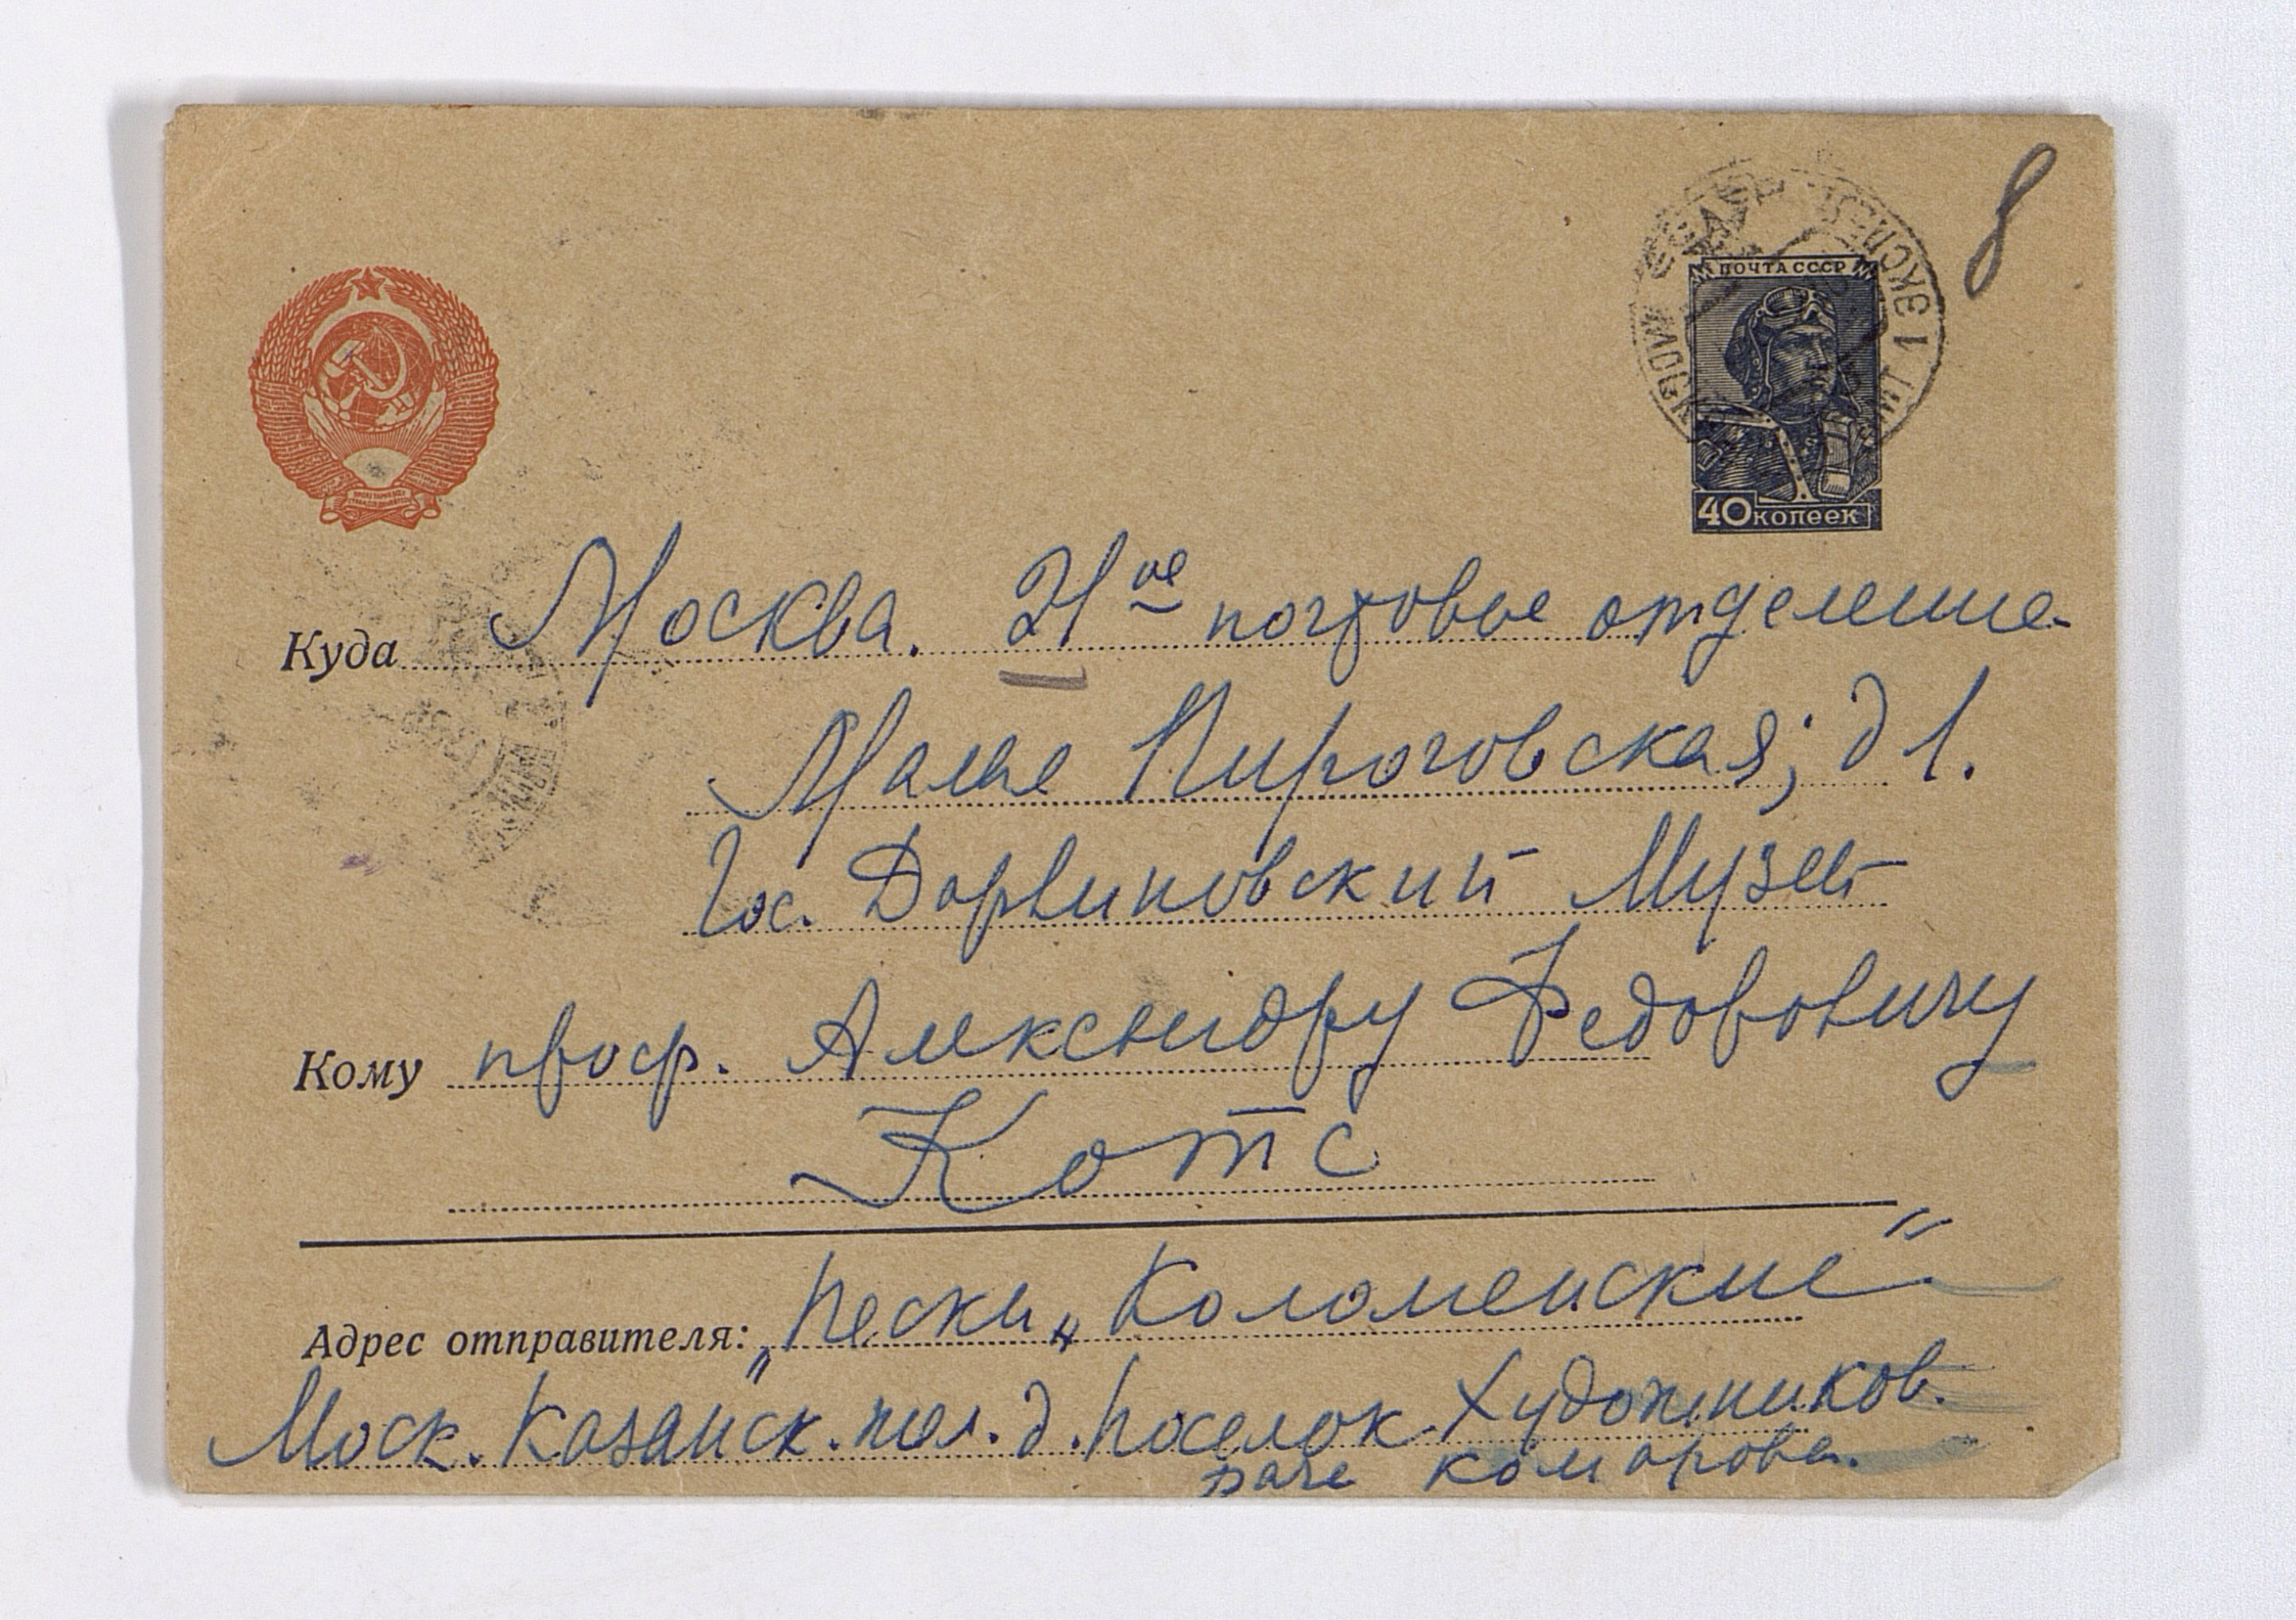 8
ПОЧТА СССР
40 копеек
Куда Москва. 21ое почтовое отделение
Малая Пироговская; д 1.
Гос. Дарвиновский Музей
Кому проф. Александру Федоровичу
Котс
Адрес отправителя: „Пески „Коломенские“
Моск. Казанск. жел. д. Поселок Художников.
дача Комарова.